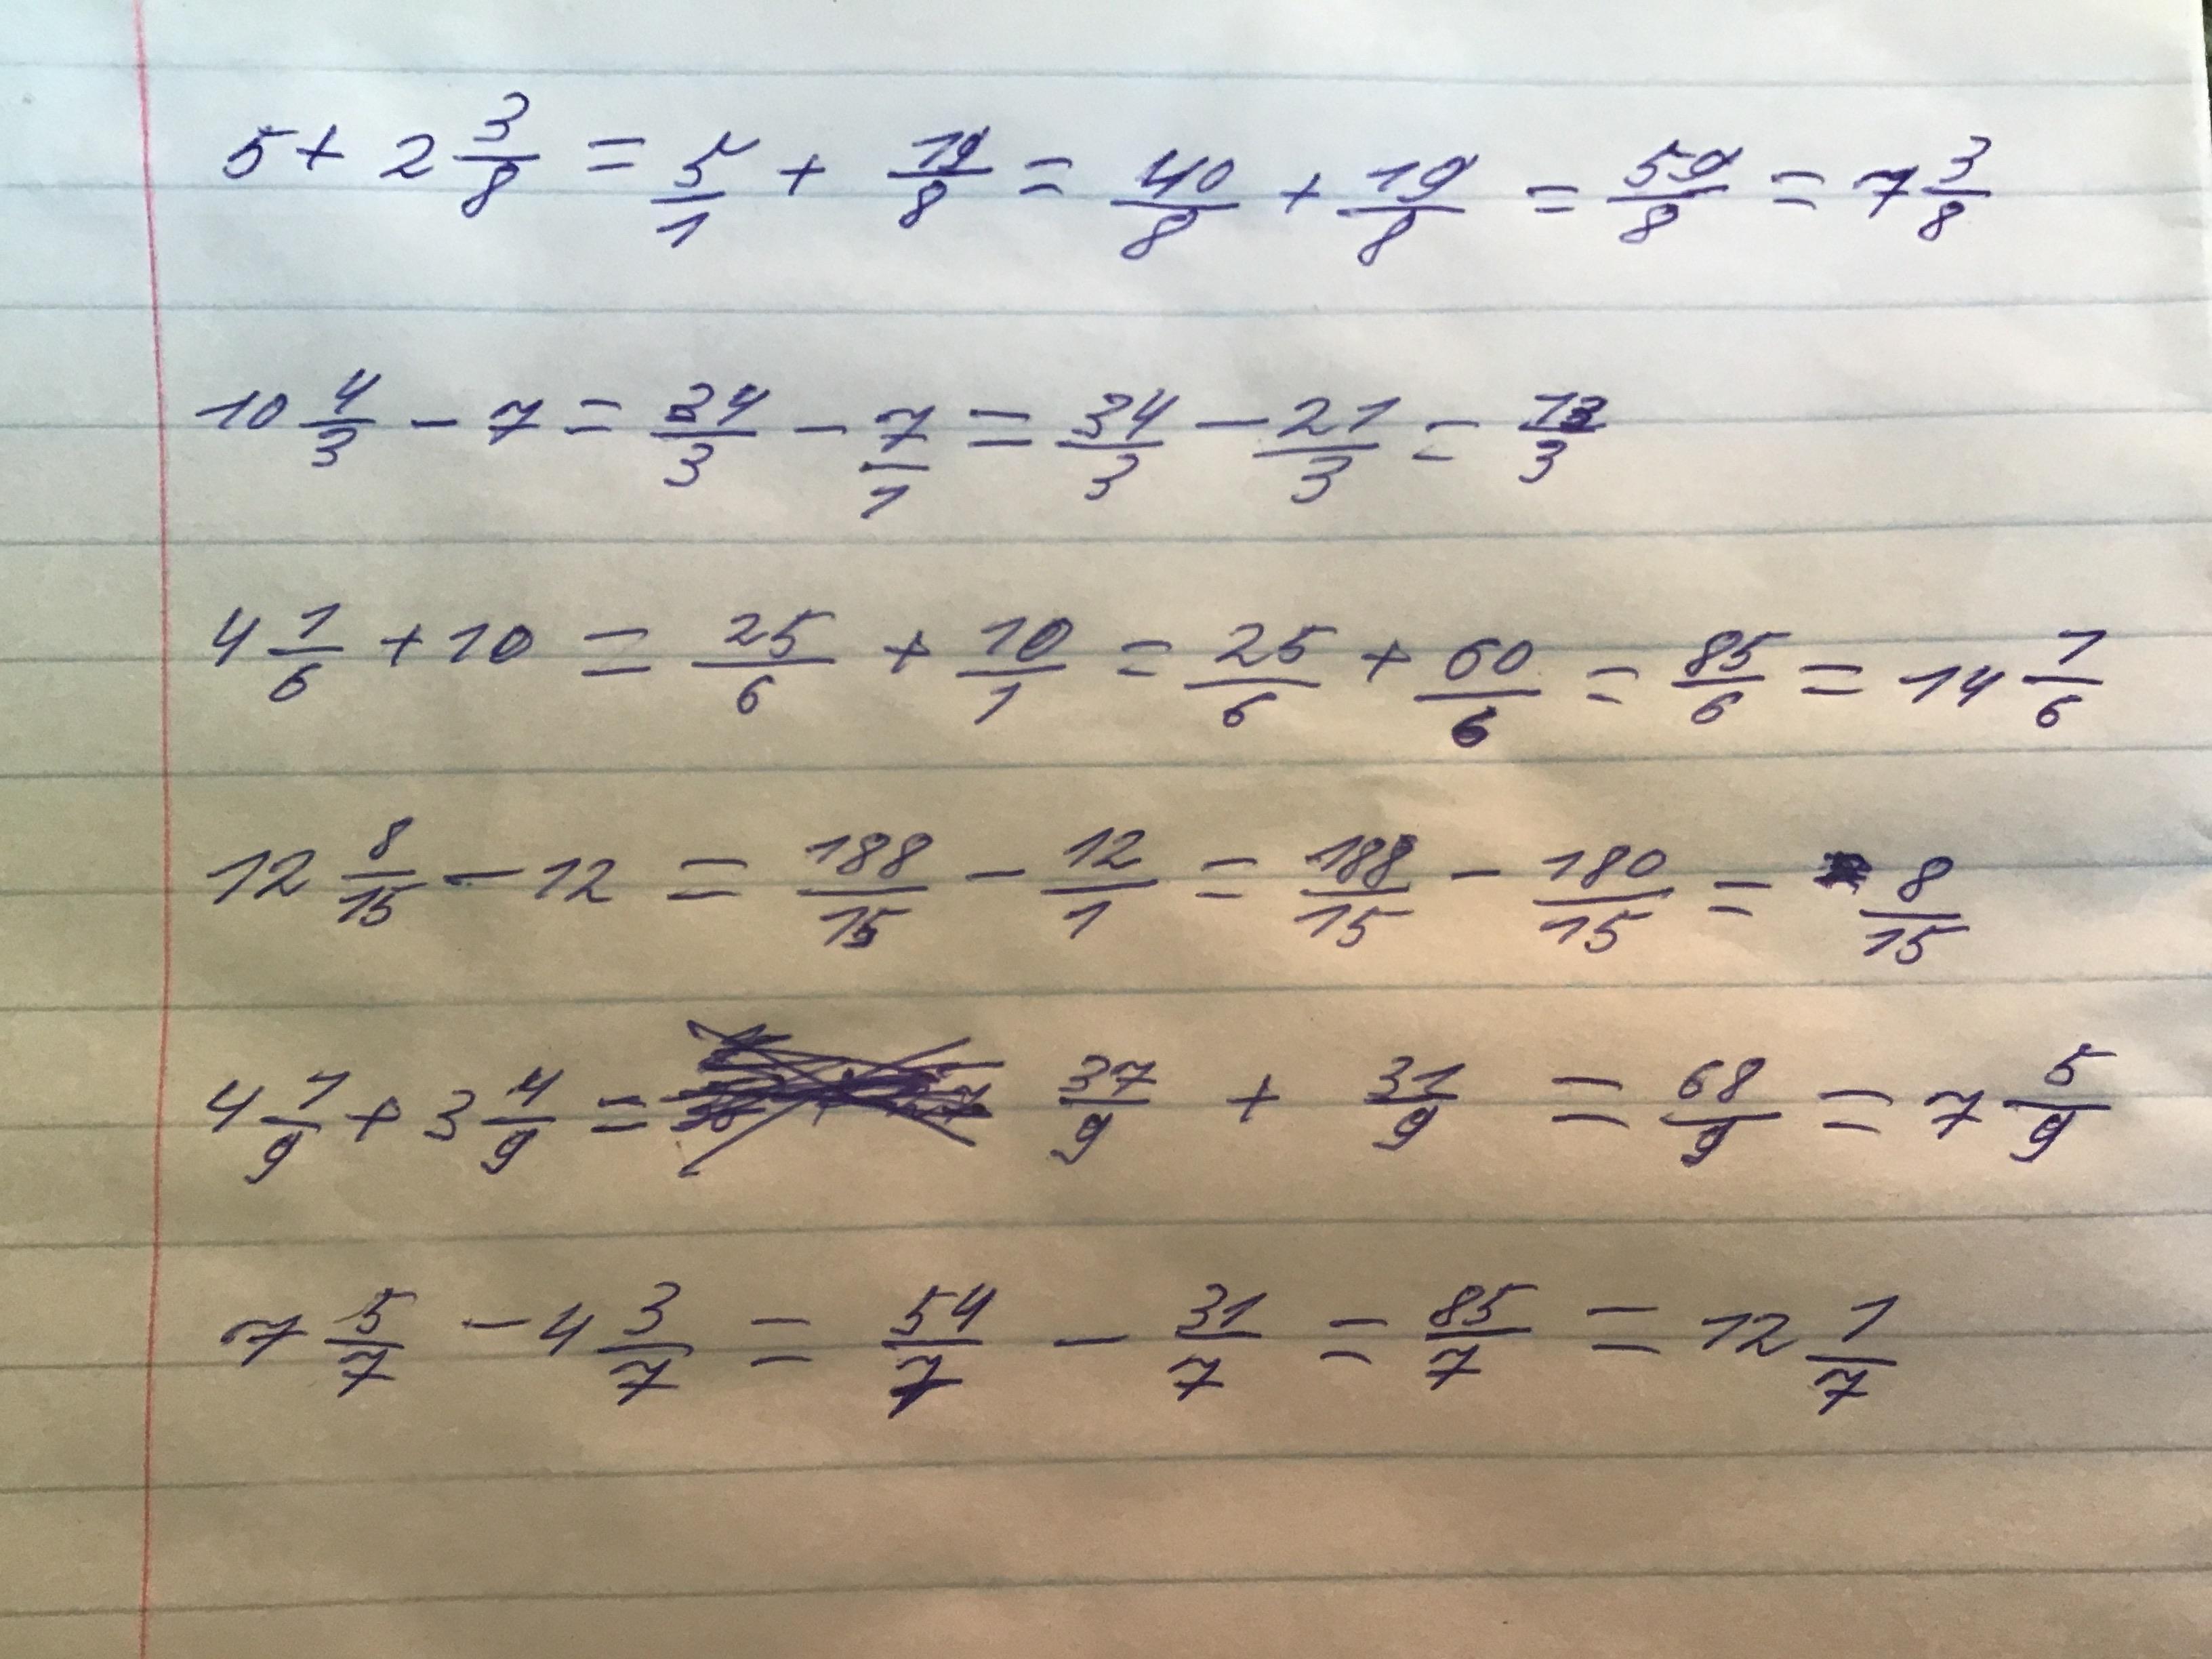 5 + 2 3/8 = 5/1 + 19/8 = 40/8 + 19/8 = 59/8 = 7 3/8
10 4/3 - 7 = 34/3 - 7/1 = 34/3 - 21/3 = 13/3
4 1/6 + 10 = 25/6 + 10/1 = 25/6 + 60/6 = 85/6 = 14 1/6
12 8/15 - 12 = 188/15 - 12/1 = 188/15 - 180/15 = 8/15
4 1/9 + 3 4/9 = 37/9 + 31/9 = 68/9 = 7 5/9
7 5/7 - 4 3/7 = 54/7 - 31/7 = 85/7 = 12 1/7